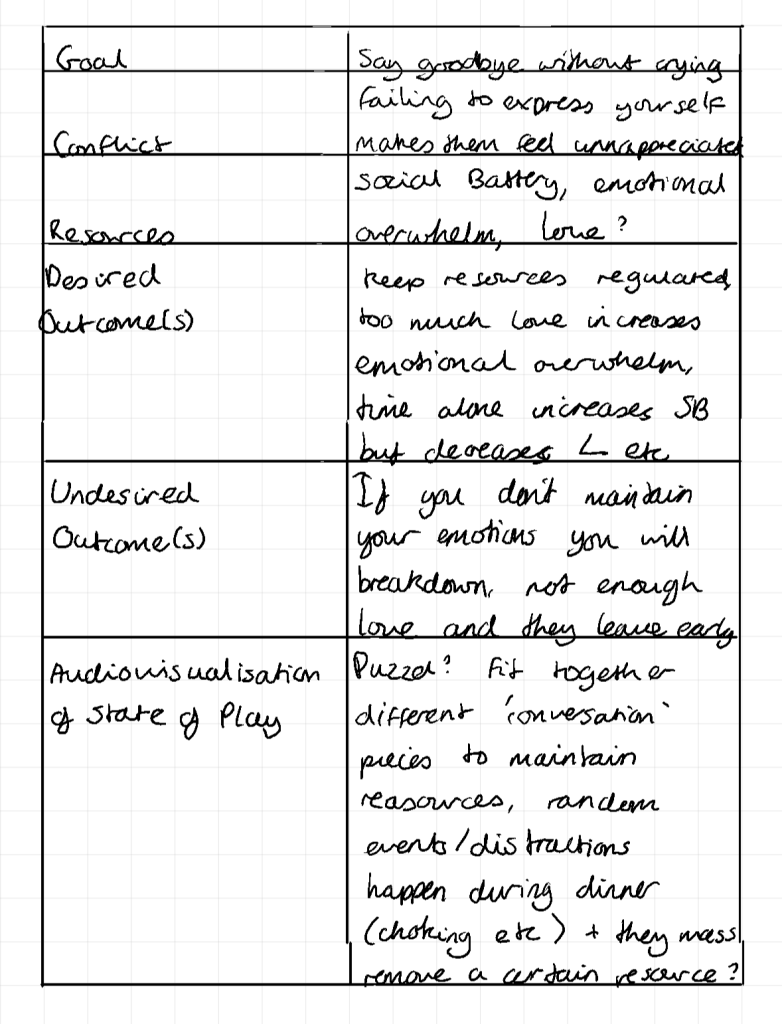 Goal
Say goodbye without crying
Conflict
Failing to express yourself
makes them feel unnappreciated
Resources
social Battery, emotional
overwhelm, love?
Desired
Outcome(s)
Keep resources regulated,
too much love increases
emotional overwhelm,
time alone increases SB
but decreases L etc
Undesired
Outcome(s)
If you don't maintain
your emotions you will
breakdown, not enough
love and they leave early
Audiovisualisation
of State of Play
Puzzel? Fit together
different 'conversation'
pieces to maintain
reasources, random
events/distractions
happen during dinner
(choking etc) + they mass
remove a certain resource?